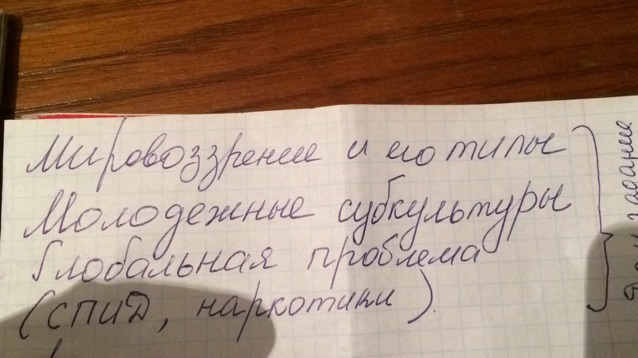 Мировоззрение и его типы
Молодежные субкультуры
Глобальная проблема
(СПИД, наркотики).
задание